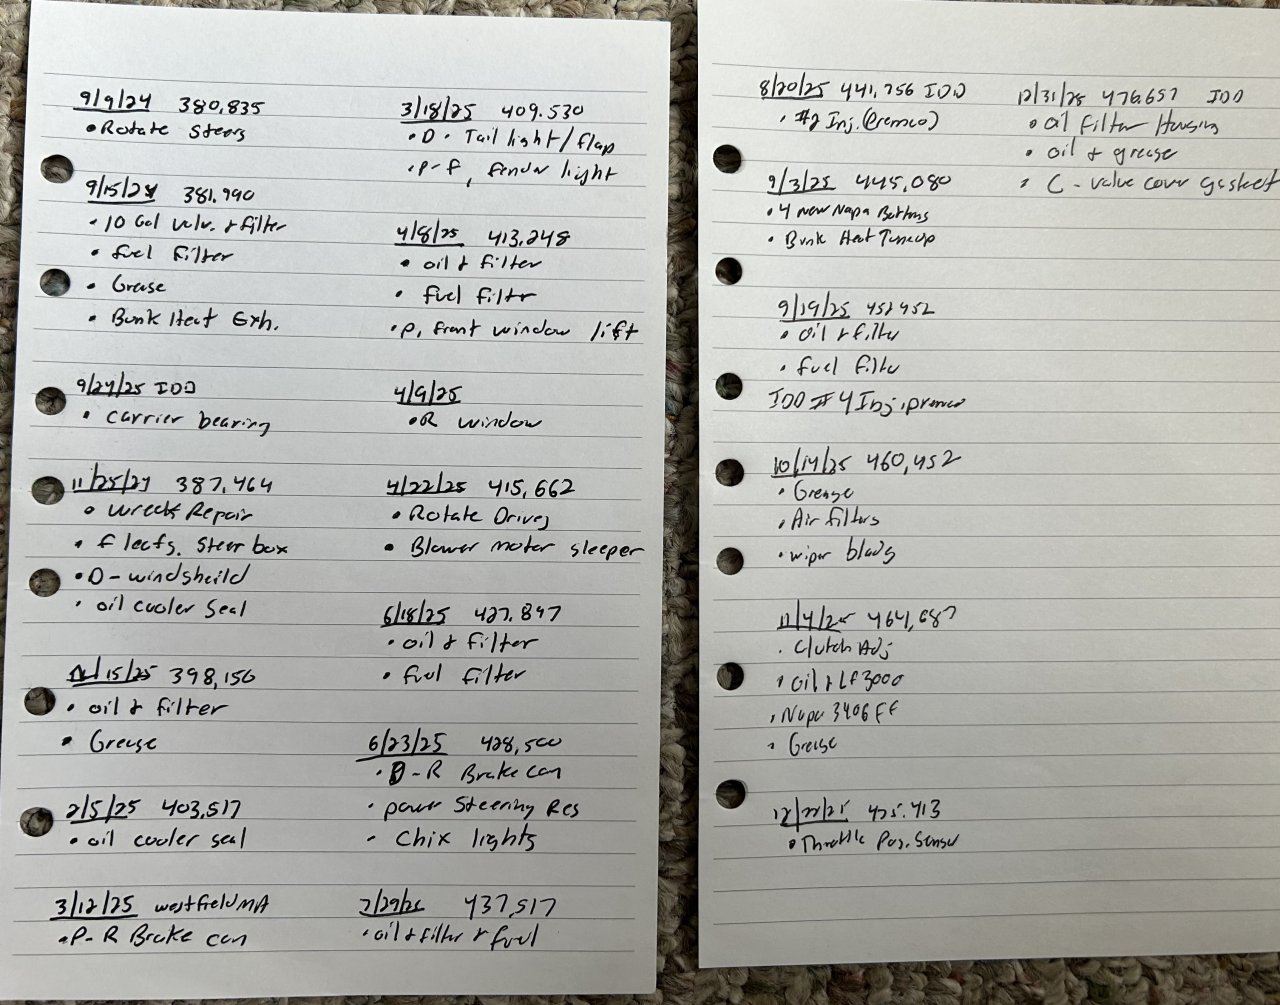 9/9/24 380,835
• Rotate Steers
9/15/24 381,990
• 10 Gal valv. & filter
• fuel filter
• Grease
• Bunk Heat Exh.
9/27/25 IOD
• carrier bearing
11/25/24 387,464
• wreck Repair
• f leafs, Steer box
• D-windsheild
• oil cooler seal
1/15/25 398,156
• oil & filter
• Grease
2/5/25 403,517
• oil cooler seal
3/12/25 westfield MA
• P-R Brake can
3/18/25 409.530
• D. Tail light/flap
• P-f, fender light
4/8/25 413,248
• oil & filter
• fuel filter
• P, front window lift
4/9/25
• R window
4/22/25 415,662
• Rotate Drives
• Blower motor sleeper
6/18/25 427,847
• oil & filter
• fuel filter
6/23/25 428,500
• D-R Brake can
• power Steering Res
• Chix lights
7/29/25 437,517
• oil & filter & fuel
8/20/25 441,756 IOD
• #2 Inj. (Premco)
9/3/25 445,080
• 4 new Napa Battns
• Bunk Heat Tuneup
9/19/25 452452
• oil & filter
• fuel filter
IOD #4 Inj. premco
10/14/25 460,452
• Grease
• Air filters
• wiper blads
11/4/25 464,687
• Clutch Adj
• Oil & LF3000
• Napa 3406 FF
• Grease
12/22/25 475.413
• Throttle Pos. Sensor
12/31/25 476,657 IOD
• oil filter Housing
• oil & grease
• C-valve cover gasket